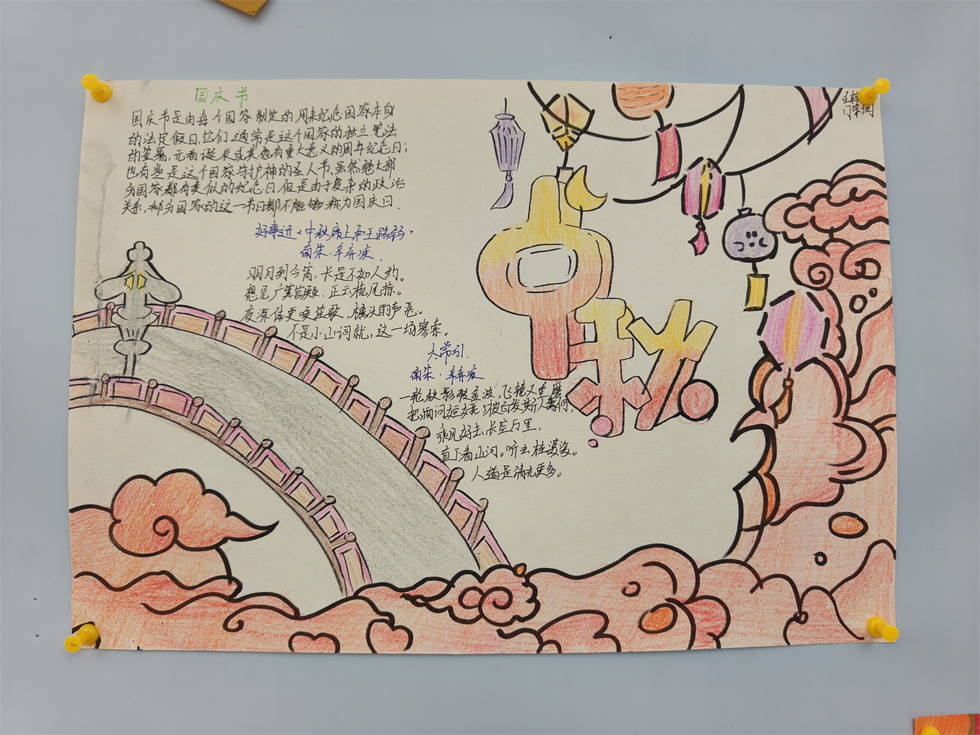 国庆节
国庆节是由每个国家制定的用来纪念国家本身
的法定假日,它们通常是这个国家的独立宪法
的签署,元首诞辰或其他有重大意义的周年纪念日;
也有些是这个国家守护神的圣人节,虽然绝大部
分国家都有类似的纪念日,但是由于复杂的政治
关系,部分国家的这一节日都不能够称为国庆日.
好事近《中秋席上和王路钤》
南宋·辛弃疾.
明月到今宵,长是不如人约。
想见广寒宫殿,正云梳风掠。
夜深休更唤笙歌,檐头雨声恶。
不是小山词就,这一场寥索。
太常引
南宋·辛弃疾
一轮秋影转金波,飞镜又重磨
把酒问姮娥:被白发欺人奈何,
乘风好去,长空万里,
直下看山河。听去桂婆娑。
人道是清光更多。
中秋